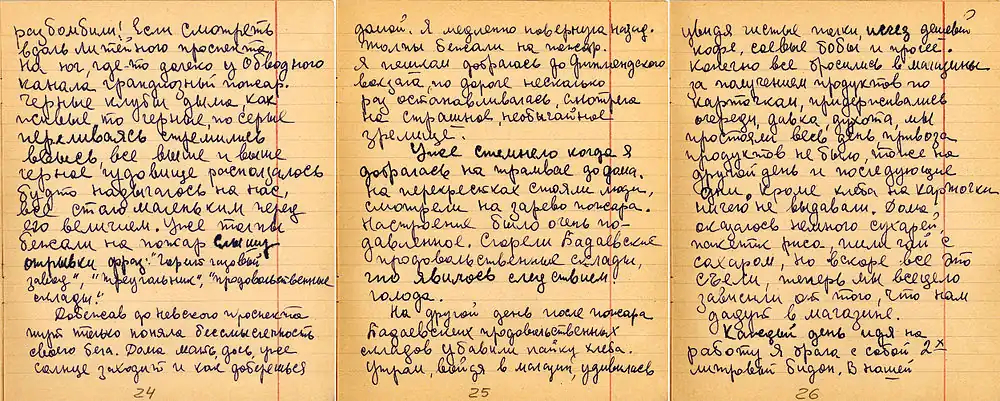 разбомбили! Если смотреть
вдоль Литейного проспекта
на юг, где-то далеко у Обводного
канала грандиозный пожар.
Черные клубы дыма как
живые то черные, то серые
переливаясь стремились
ввысь, все выше и выше
черное чудовище расползалось
будто надвигалось на нас,
все стало маленьким перед
его величием. Уже толпы
бежали на пожар слышу
отрывки фраз: "горит газовый
завод", "треугольник", "продовольственные
склады."
Добежав до Невского проспекта
тут только поняла бессмысленность
своего бега. Дома мать, дочь, уже
солнце заходит и как доберешься
24
домой. Я медленно повернула назад.
Толпы бежали на пожар.
Я пешком добралась до Финляндского
вокзала, по дороге несколько
раз останавливалась, смотрела
на страшное, необычайное
зрелище.
Уже стемнело когда я
добралась на трамвае до дома.
На перекрестках стояли люди,
смотрели на зарево пожара.
Настроение было очень по-
давленное. Сгорели Бадаевские
продовольственные склады,
что явилось следствием
голода.
На другой день после пожара
Бадаевских продовольственных
складов убавили пайку хлеба.
Утром, войдя в магазин, удивилась
25
увидя чистые полки, исчез дешевый
кофе, соевые бобы и просее.
Конечно все бросились в магазины
за получением продуктов по
карточкам, придерживались
очереди, давка, духота, мы
простояли весь день, привоза
продуктов не было, тоже на
другой день и последующие
дни, кроме хлеба на карточки
ничего не выдавали. Дома
оказалось немного сухарей,
пакетик риса, пили чай с
сахаром, но вскоре все это
съели, теперь мы всецело
зависили от того, что нам
дадут в магазине.
Каждый день идя на
работу я брала с собой 2х
литровый бидон. В нашей
26